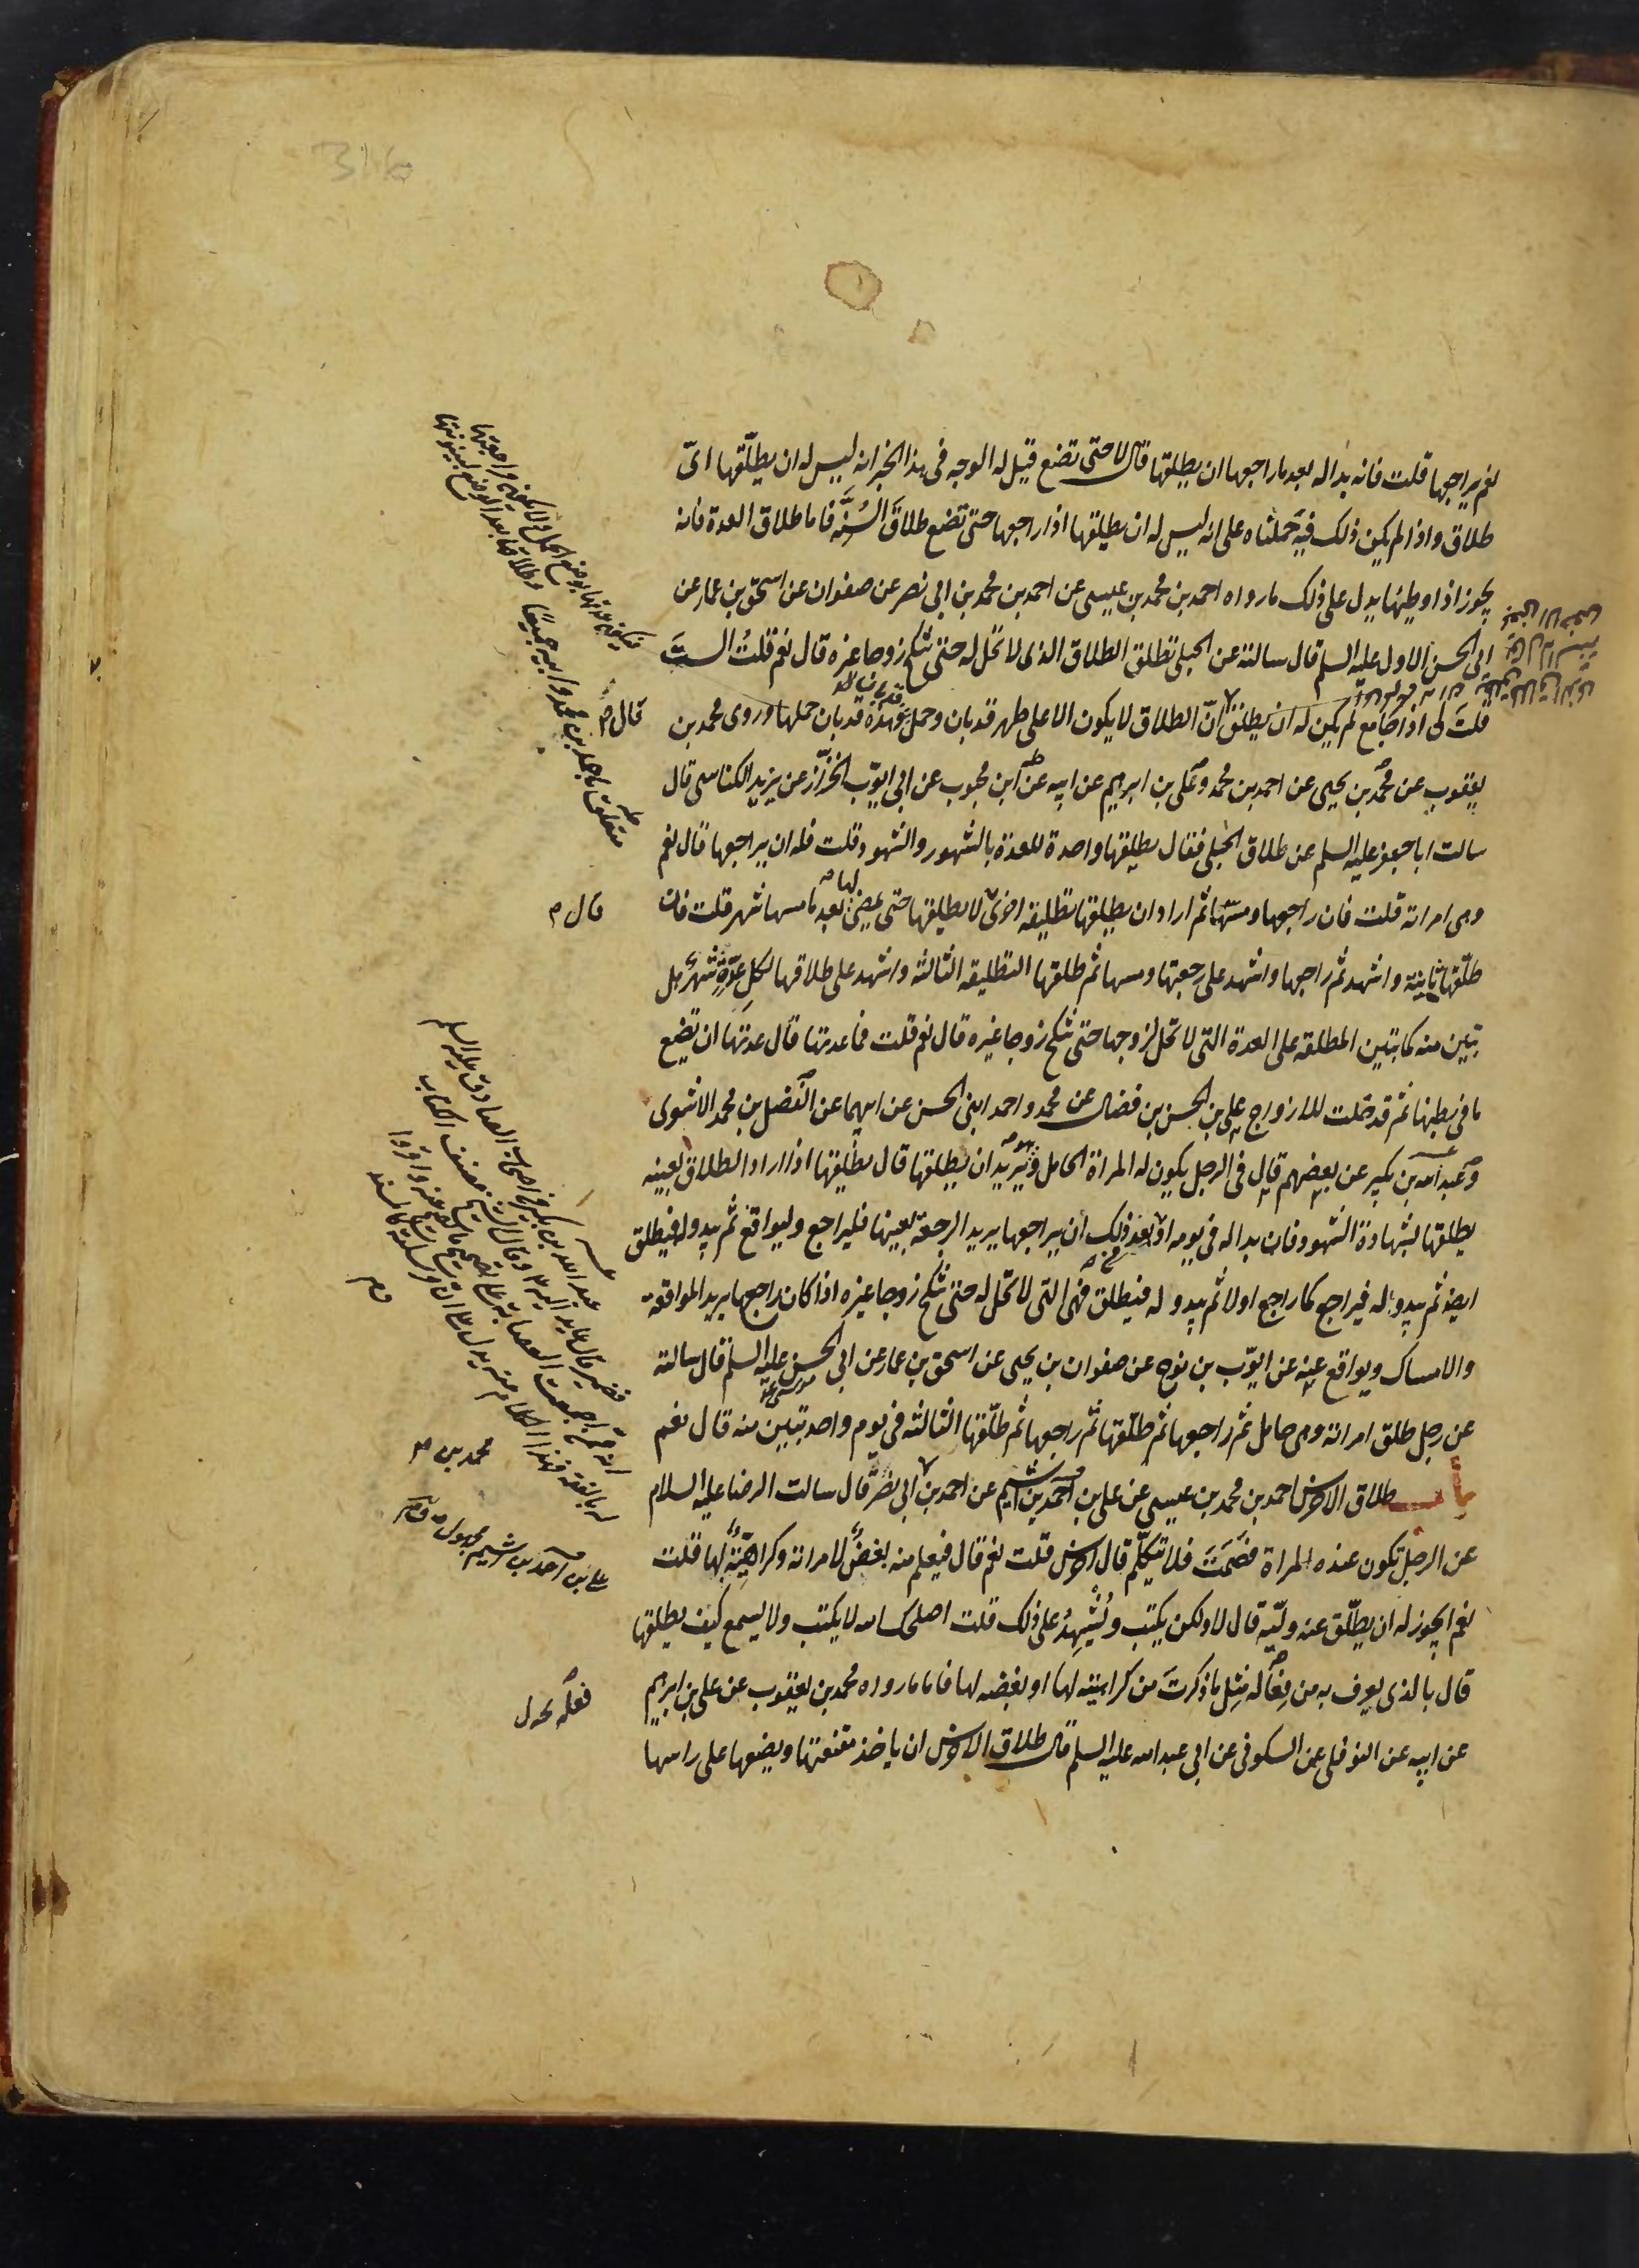 نعم يراجعها قلت فانه بدا له بعد ما راجعها ان يطلقها قال لا حتى تضع قيل له الوجه فى هذا الخبر انه ليس له ان يطلّقها اىّ
طلاق واذا لم يكن ذلك فيه حملناه على انه ليس له ان يطلقها اذا راجعها حتى تضع طلاقَ السُنّة فاما طلاق العدة فانه
يجوز اذا وطيها يدل على ذلك ما رواه احمد بن محمد بن عيسى عن احمد بن محمد بن ابى نصر عن صفوان عن اسحق بن عمار عن
ابى الحسن الاول عليه السلم قال سالته عن الحبلى تطلق الطلاق الذى لا تحل له حتى تنكح زوجا غيره قال نعم قلتُ الستَ
قلتَ لى اذا جامع لم يكن له ان يطلق قال انّ الطلاق لا يكون الا على طهر قد بان وحمل قد بان وهذه قد بان حملها وروى محمد بن
يعقوب عن محمد بن يحيى عن احمد بن محمد وعلى بن ابرهيم عن ابيه عن ابن محبوب عن ابى ايوّب الخزّاز عن يزيد الكناسى قال
سالت ابا جعفر عليه السلم عن طلاق الحبلى فقال يطلقها واحدة للعدة بالشهور والشهود قلت فله ان يراجعها قال نعم
وهى امراته قلت فان راجعها ومسّها ثم اراد ان يطلقها تطليقه اخرى قال لا يطلقها حتى يمضى لها بعد ما مسها شهر قلت فان
طلّقها ثانية واشهد ثم راجعها واشهد على رجعتها ومسها ثم طلقها التطليقه الثالثه واشهد على طلاقها لكل عدّةٍ شهرٌ هل
تبين منه كما تبين المطلقه على العدة التى لا تحل لزوجها حتى تنكح زوجا غيره قال نعم قلت فما عدتها قال عدتها ان تضع
ما فى بطنها ثم قد حلت للازواج على بن الحسن بن فضال عن محمد واحمد ابنى الحسن عن ابيهما عن الفضل بن محمد الاشعرى
وعبد الله بن بكير عن بعضهم قال فى الرجل يكون له المراة الحامل وهو يريد ان يطلقها قال يطلقها اذا اراد الطلاق بعينه
يطلقها بشهادة الشهود فان بدا له فى يومه او بعد ذلك ان يراجعها يريد الرجعة بعينها فليراجع وليواقع ثم يبدو له فيطلق
ايضا ثم يبدو له فيراجع كما راجع اولا ثم يبدو له فيطلق فهى التى لا تحل له حتى تنكح زوجا غيره اذا كان راجعها يريد المواقعة
والامساك ويواقع عنه عن ايوّب بن نوح عن صفوان بن يحيى عن اسحق بن عمار عن ابى الحسن عليه السلم قال سالته
عن رجل طلق امراته وهى حامل ثم راجعها ثم طلّقها ثم راجعها ثم طلّقها الثالثه فى يوم واحد تبين منه قال نعم
باب طلاق الاخرس احمد بن محمد بن عيسى عن على بن احمد بن اشيم عن احمد بن ابى نصر قال سالت الرضا عليه السلام
عن الرجل تكون عنده المراة فصَمَتَ فلا يتكلّم قال اخرس قلت نعم قال فيعلم منه بغضٌ لامراته وكراهيّةٌ لها قلت
نعم ايجوز له ان يطلّق عنه وليّه قال لا ولكن يكتب ويُشْهِدُ على ذلك قلت اصلحك الله لا يكتب ولا يسمع كيف يطلقها
قال بالذى يعرف به من فعاله مِثل ما ذكرتَ من كراهيته لها او بغضه لها فاما ما رواه محمد بن يعقوب عن على بن ابرهيم
عن ابيه عن النوفلى عن السكونى عن ابى عبد الله عليه السلم قال طلاق الاخرس ان ياخذ مقنعتها ويضعها على راسها
قال م
قال م
محمد بن
على بن احمد بن اشيم مجهول
316